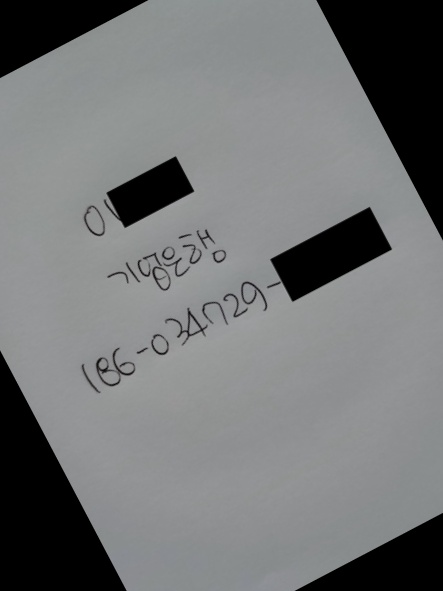 기업은행
186-034729-